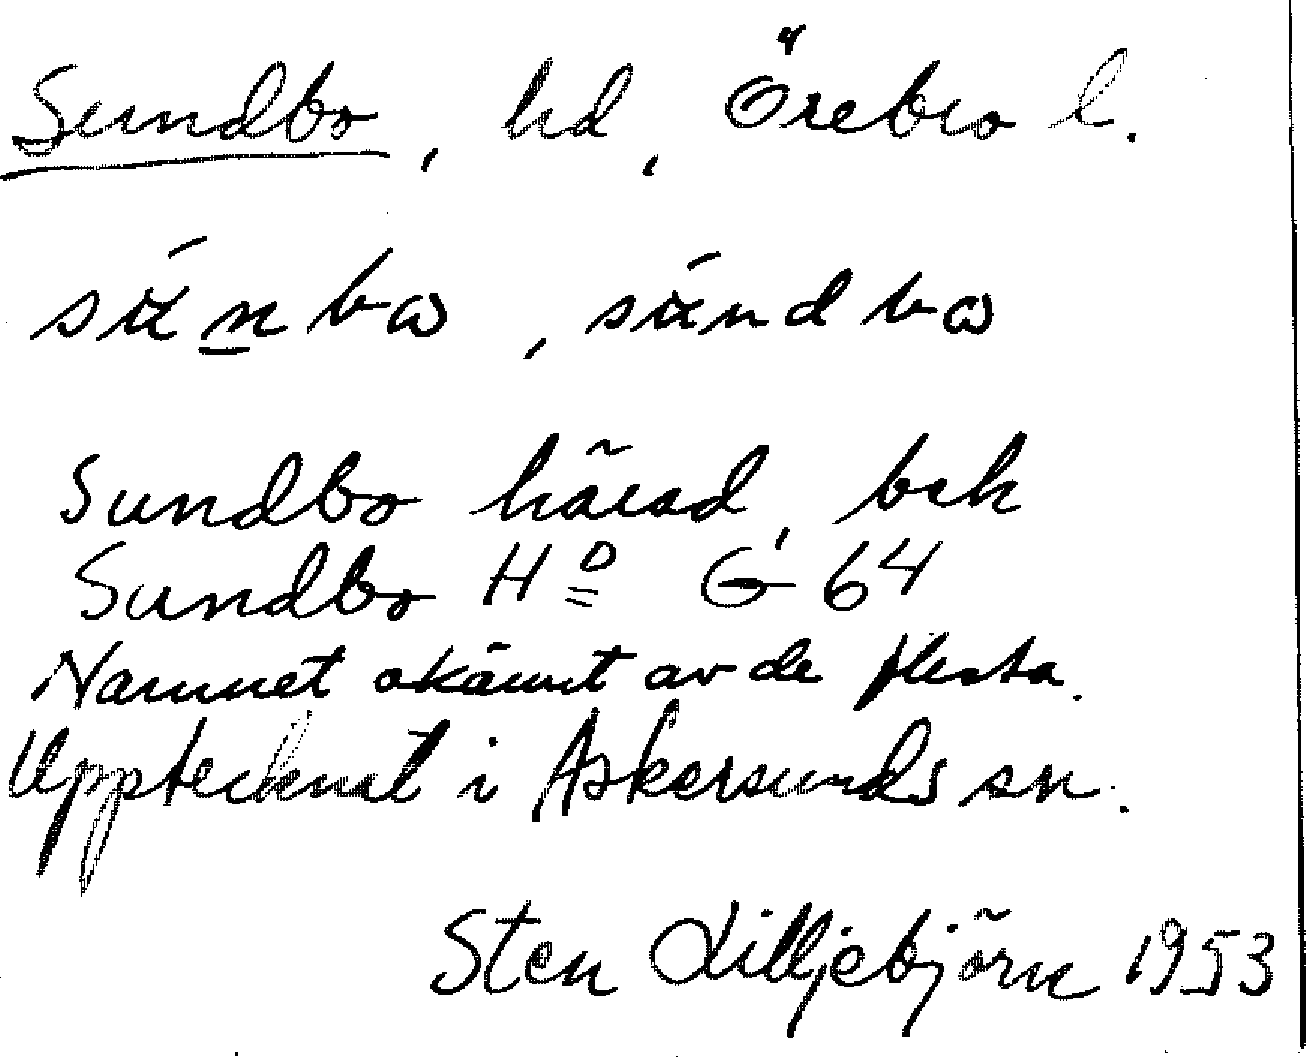 Sundbo, hd, Örebro l.
Sundbo härad, bek
Sundbo H<sup>D</sup> G 64
Namnet okännt av de flesta.
Upptecknat i Askersunds sn.
Sten Lilljebjörn 1953